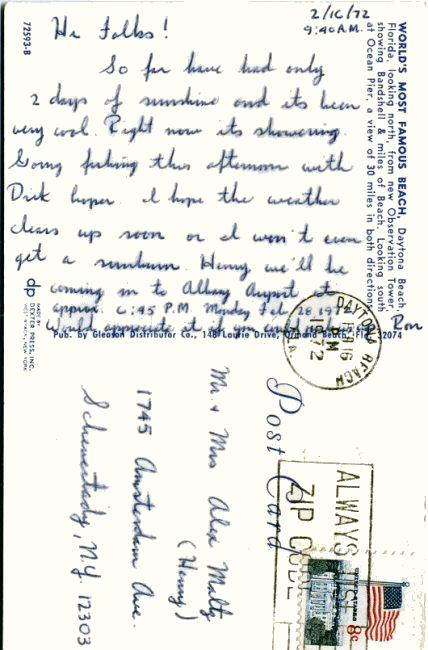 2/16/72
9:40 A.M.
Hi Folks!
So far have had only
2 days of sunshine and its been
very cool. Right now its showering.
Going fishing this afternoon with
Dick I hope the weather
clears up soon or I won't even
get a sunburn. Henny we'll be
coming in to Albany Airport at
approx. 6:45 P.M. Monday Feb. 28 1972
Would appreciate it if you could
Ron
72593-B
WORLD'S MOST FAMOUS BEACH, Daytona Beach,
Florida, looking north from new Observation Tower,
showing Bandshell & miles of Beach. Looking south
at Ocean Pier, a view of 30 miles in both directions.
dp
MADE BY
DEXTER PRESS, INC.
WEST NYACK, NEW YORK
Pub. by Gleason Distributor Co., 148 Laurie Drive, Ormond Beach, Fla. 32074
Post Card
DAYTONA BEACH
FEB 16
PM
1972
Mr. & Mrs Alex Maltz
(Henny)
1745 Amsterdam Ave.
Schenectady, N.Y. 12303
ALWAYS USE
ZIP CODE
8c